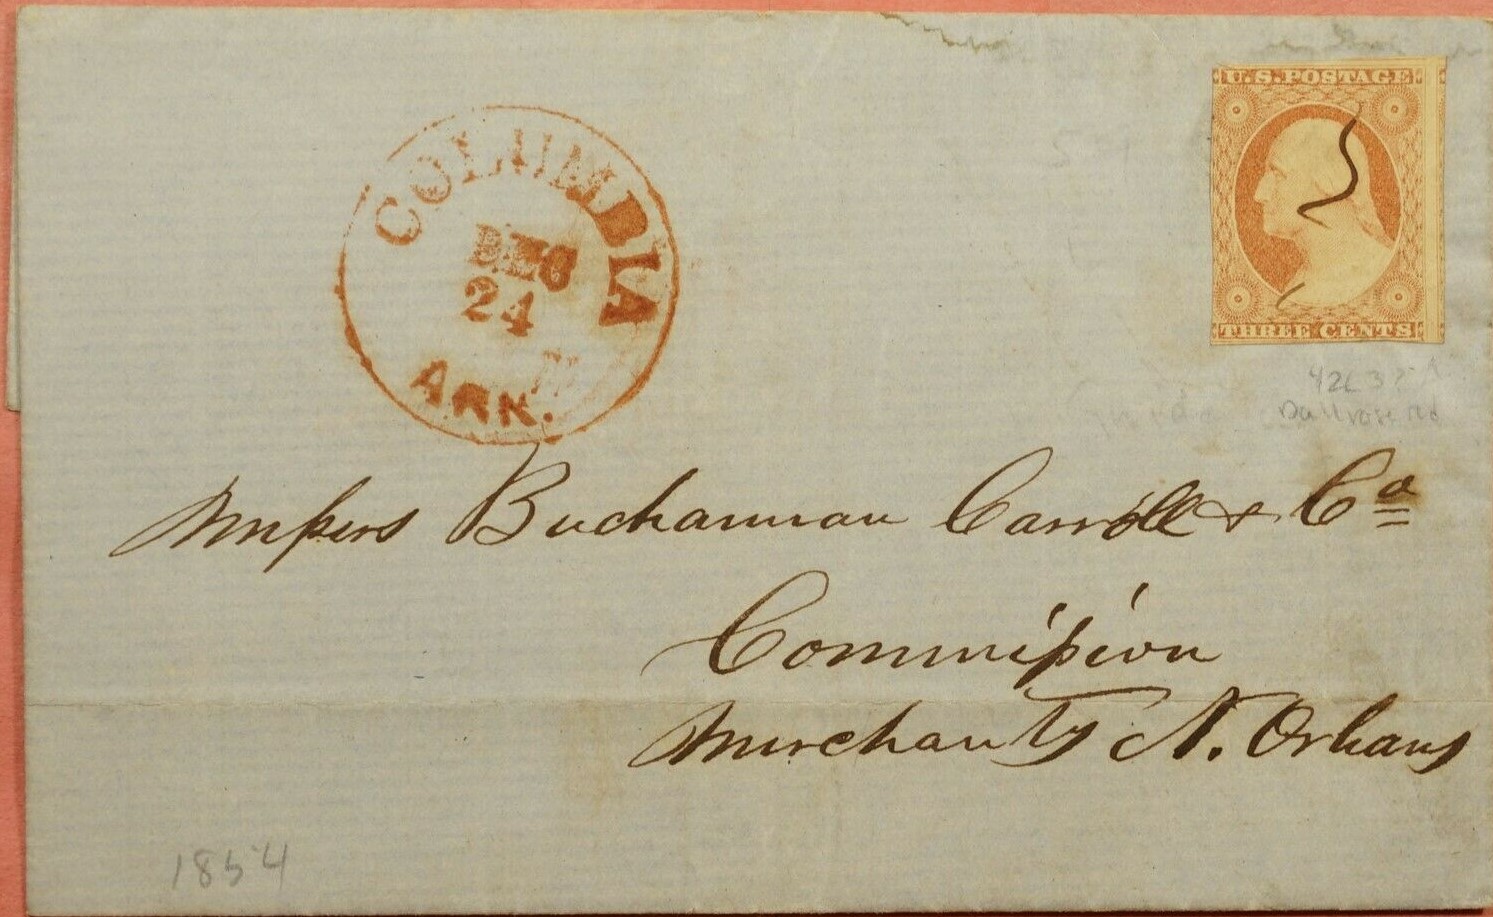 COLUMBIA
DEC
24
ARK.
U.S. POSTAGE
THREE CENTS
Dull rose red
Messers Buchannan Carroll & Co
Commission
Merchants N. Orleans
1854